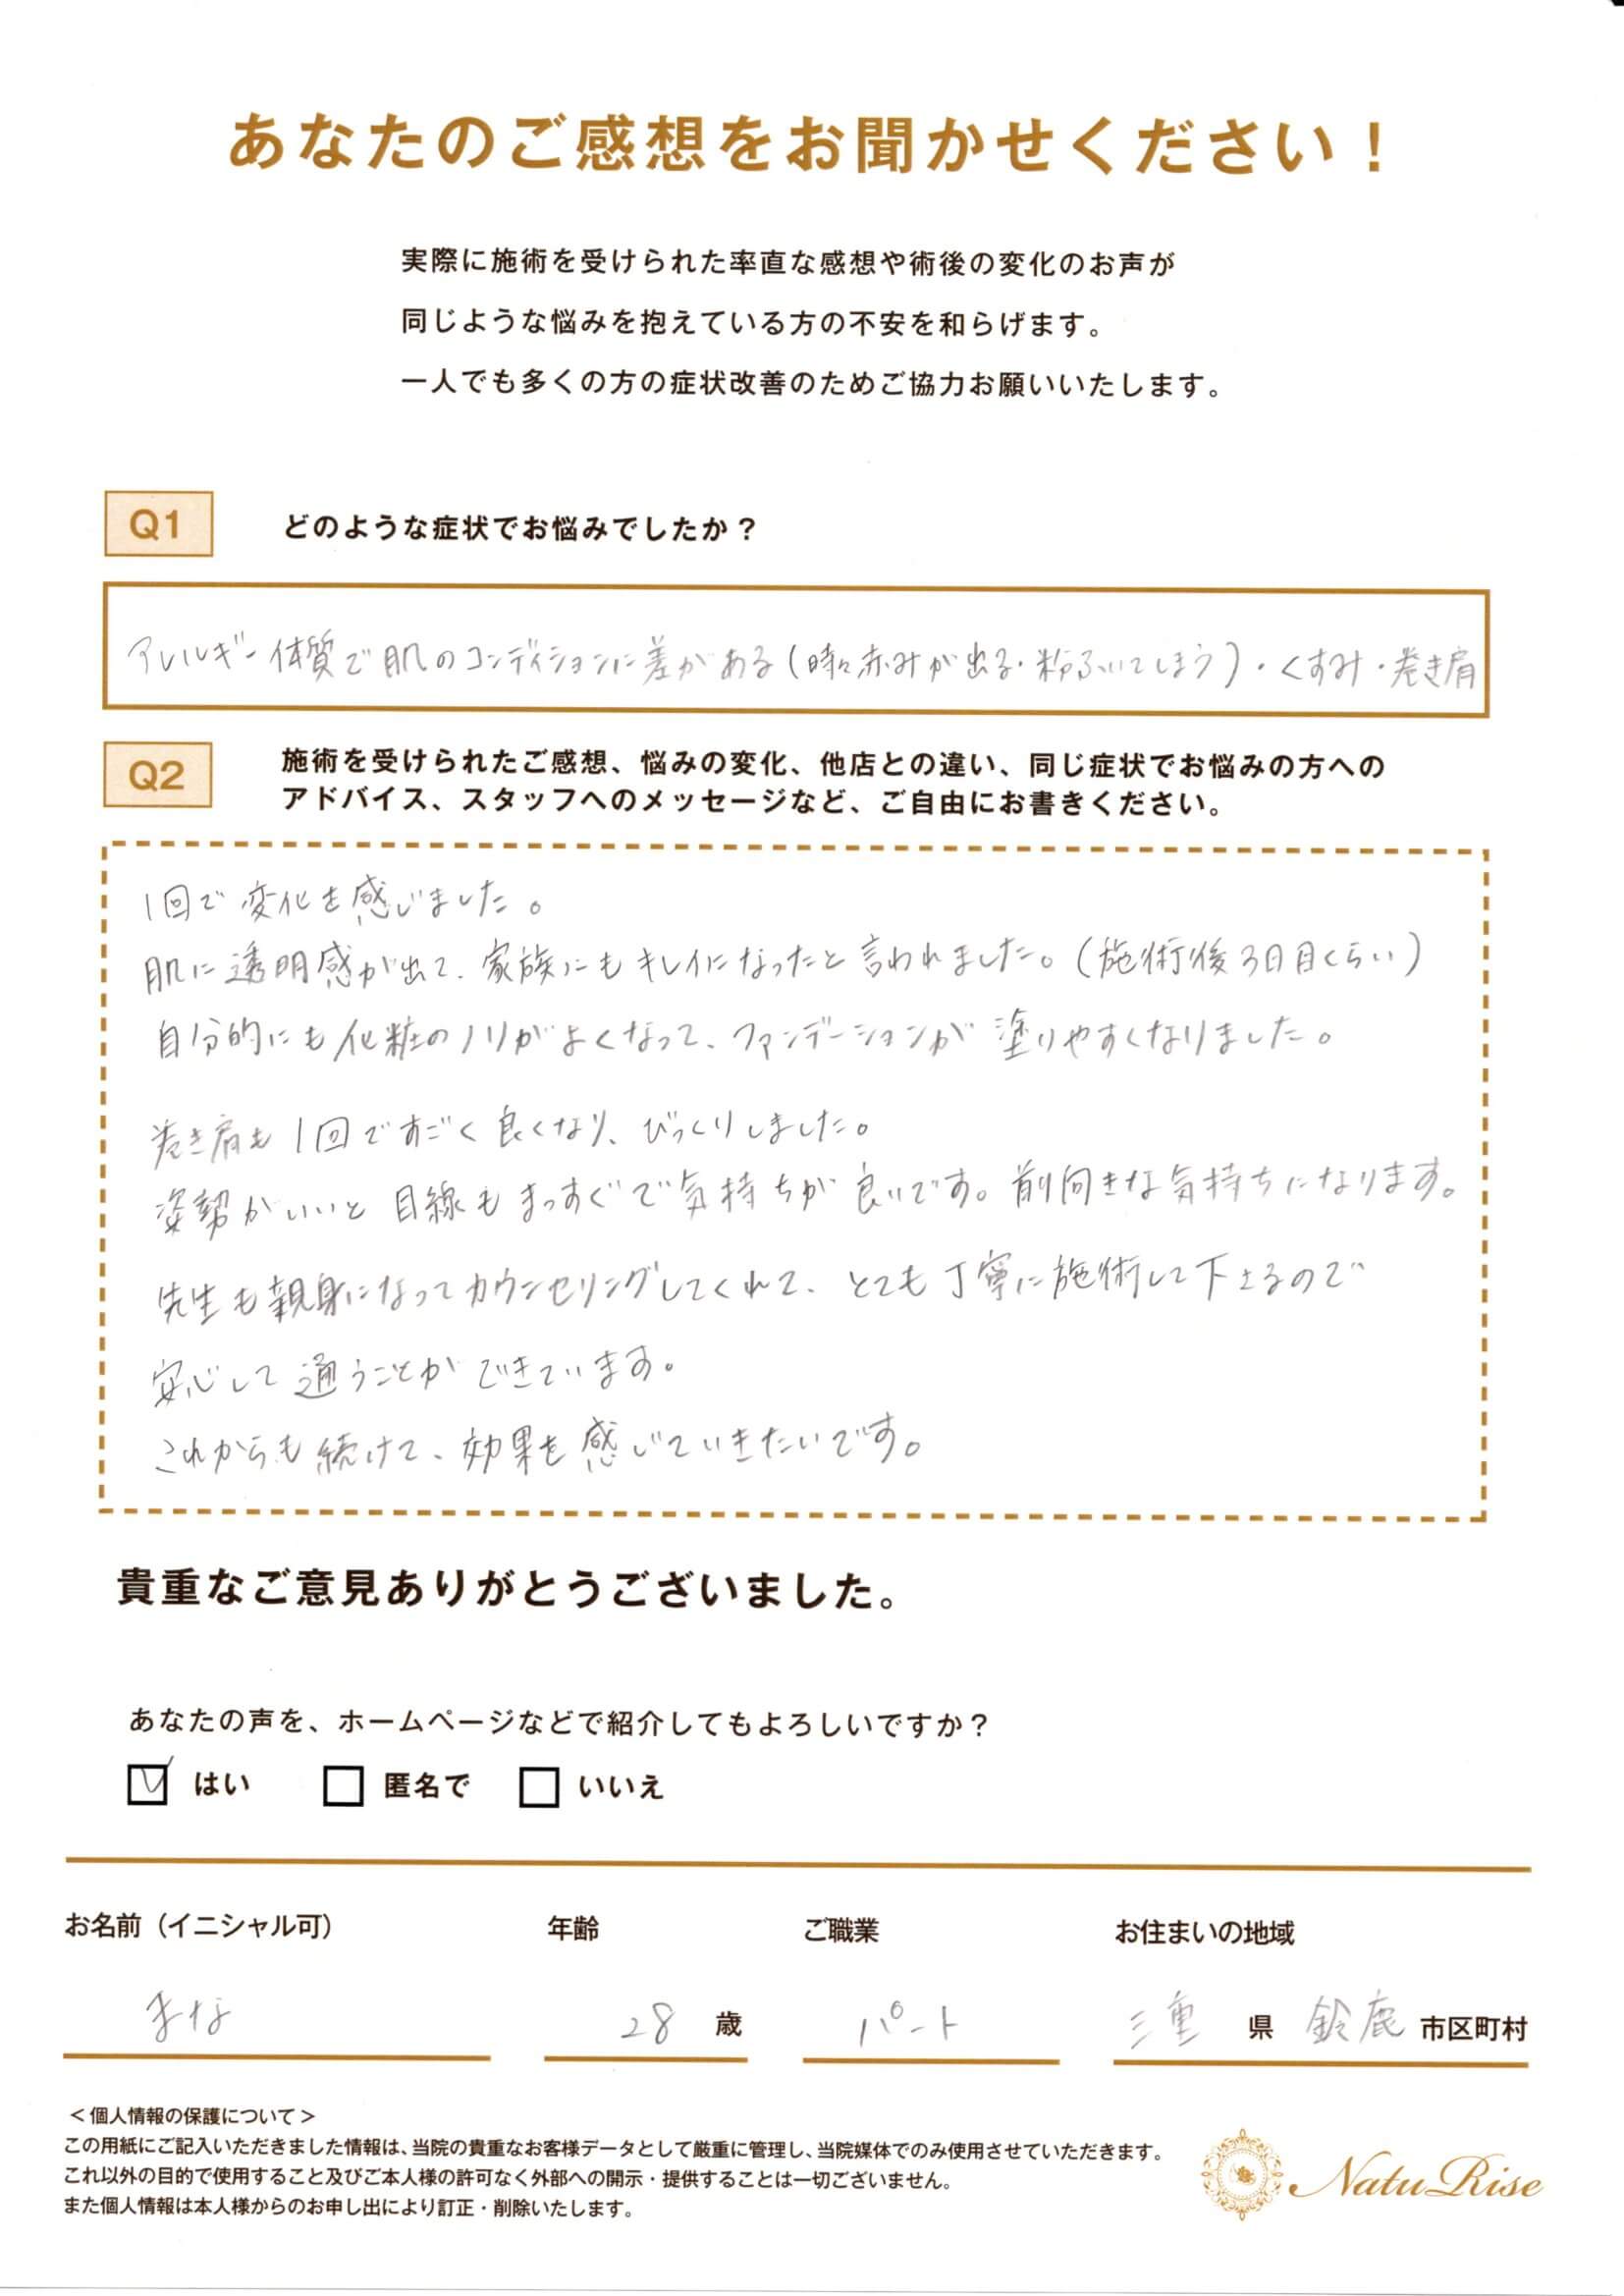 あなたのご感想をお聞かせください！
実際に施術を受けられた率直な感想や術後の変化のお声が
同じような悩みを抱えている方の不安を和らげます。
一人でも多くの方の症状改善のためご協力お願いいたします。
Q1 どのような症状でお悩みでしたか？
アレルギー体質で肌のコンディションに差がある(時々赤みが出る・粉ふいてしまう)・くすみ・巻き肩
Q2 施術を受けられたご感想、悩みの変化、他店との違い、同じ症状でお悩みの方への
アドバイス、スタッフへのメッセージなど、ご自由にお書きください。
1回で変化を感じました。
肌に透明感が出て、家族にもキレイになったと言われました。(施術後3日目くらい)
自分的にも化粧のノリがよくなって、ファンデーションが塗りやすくなりました。
巻き肩も1回ですごく良くなり、びっくりしました。
姿勢がいいと目線もまっすぐで気持ちが良いです。前向きな気持ちになります。
先生も親身になってカウンセリングしてくれて、とても丁寧に施術して下さるので
安心して通うことができています。
これからも続けて、効果を感じていきたいです。
貴重なご意見ありがとうございました。
あなたの声を、ホームページなどで紹介してもよろしいですか？
はい 匿名で いいえ
お名前（イニシャル可） 年齢 ご職業 お住まいの地域
まな 28 歳 パート 三重 県 鈴鹿 市区町村
＜個人情報の保護について＞
この用紙にご記入いただきました情報は、当院の貴重なお客様データとして厳重に管理し、当院媒体でのみ使用させていただきます。
これ以外の目的で使用すること及びご本人様の許可なく外部への開示・提供することは一切ございません。
また個人情報は本人様からのお申し出により訂正・削除いたします。
NatuRise